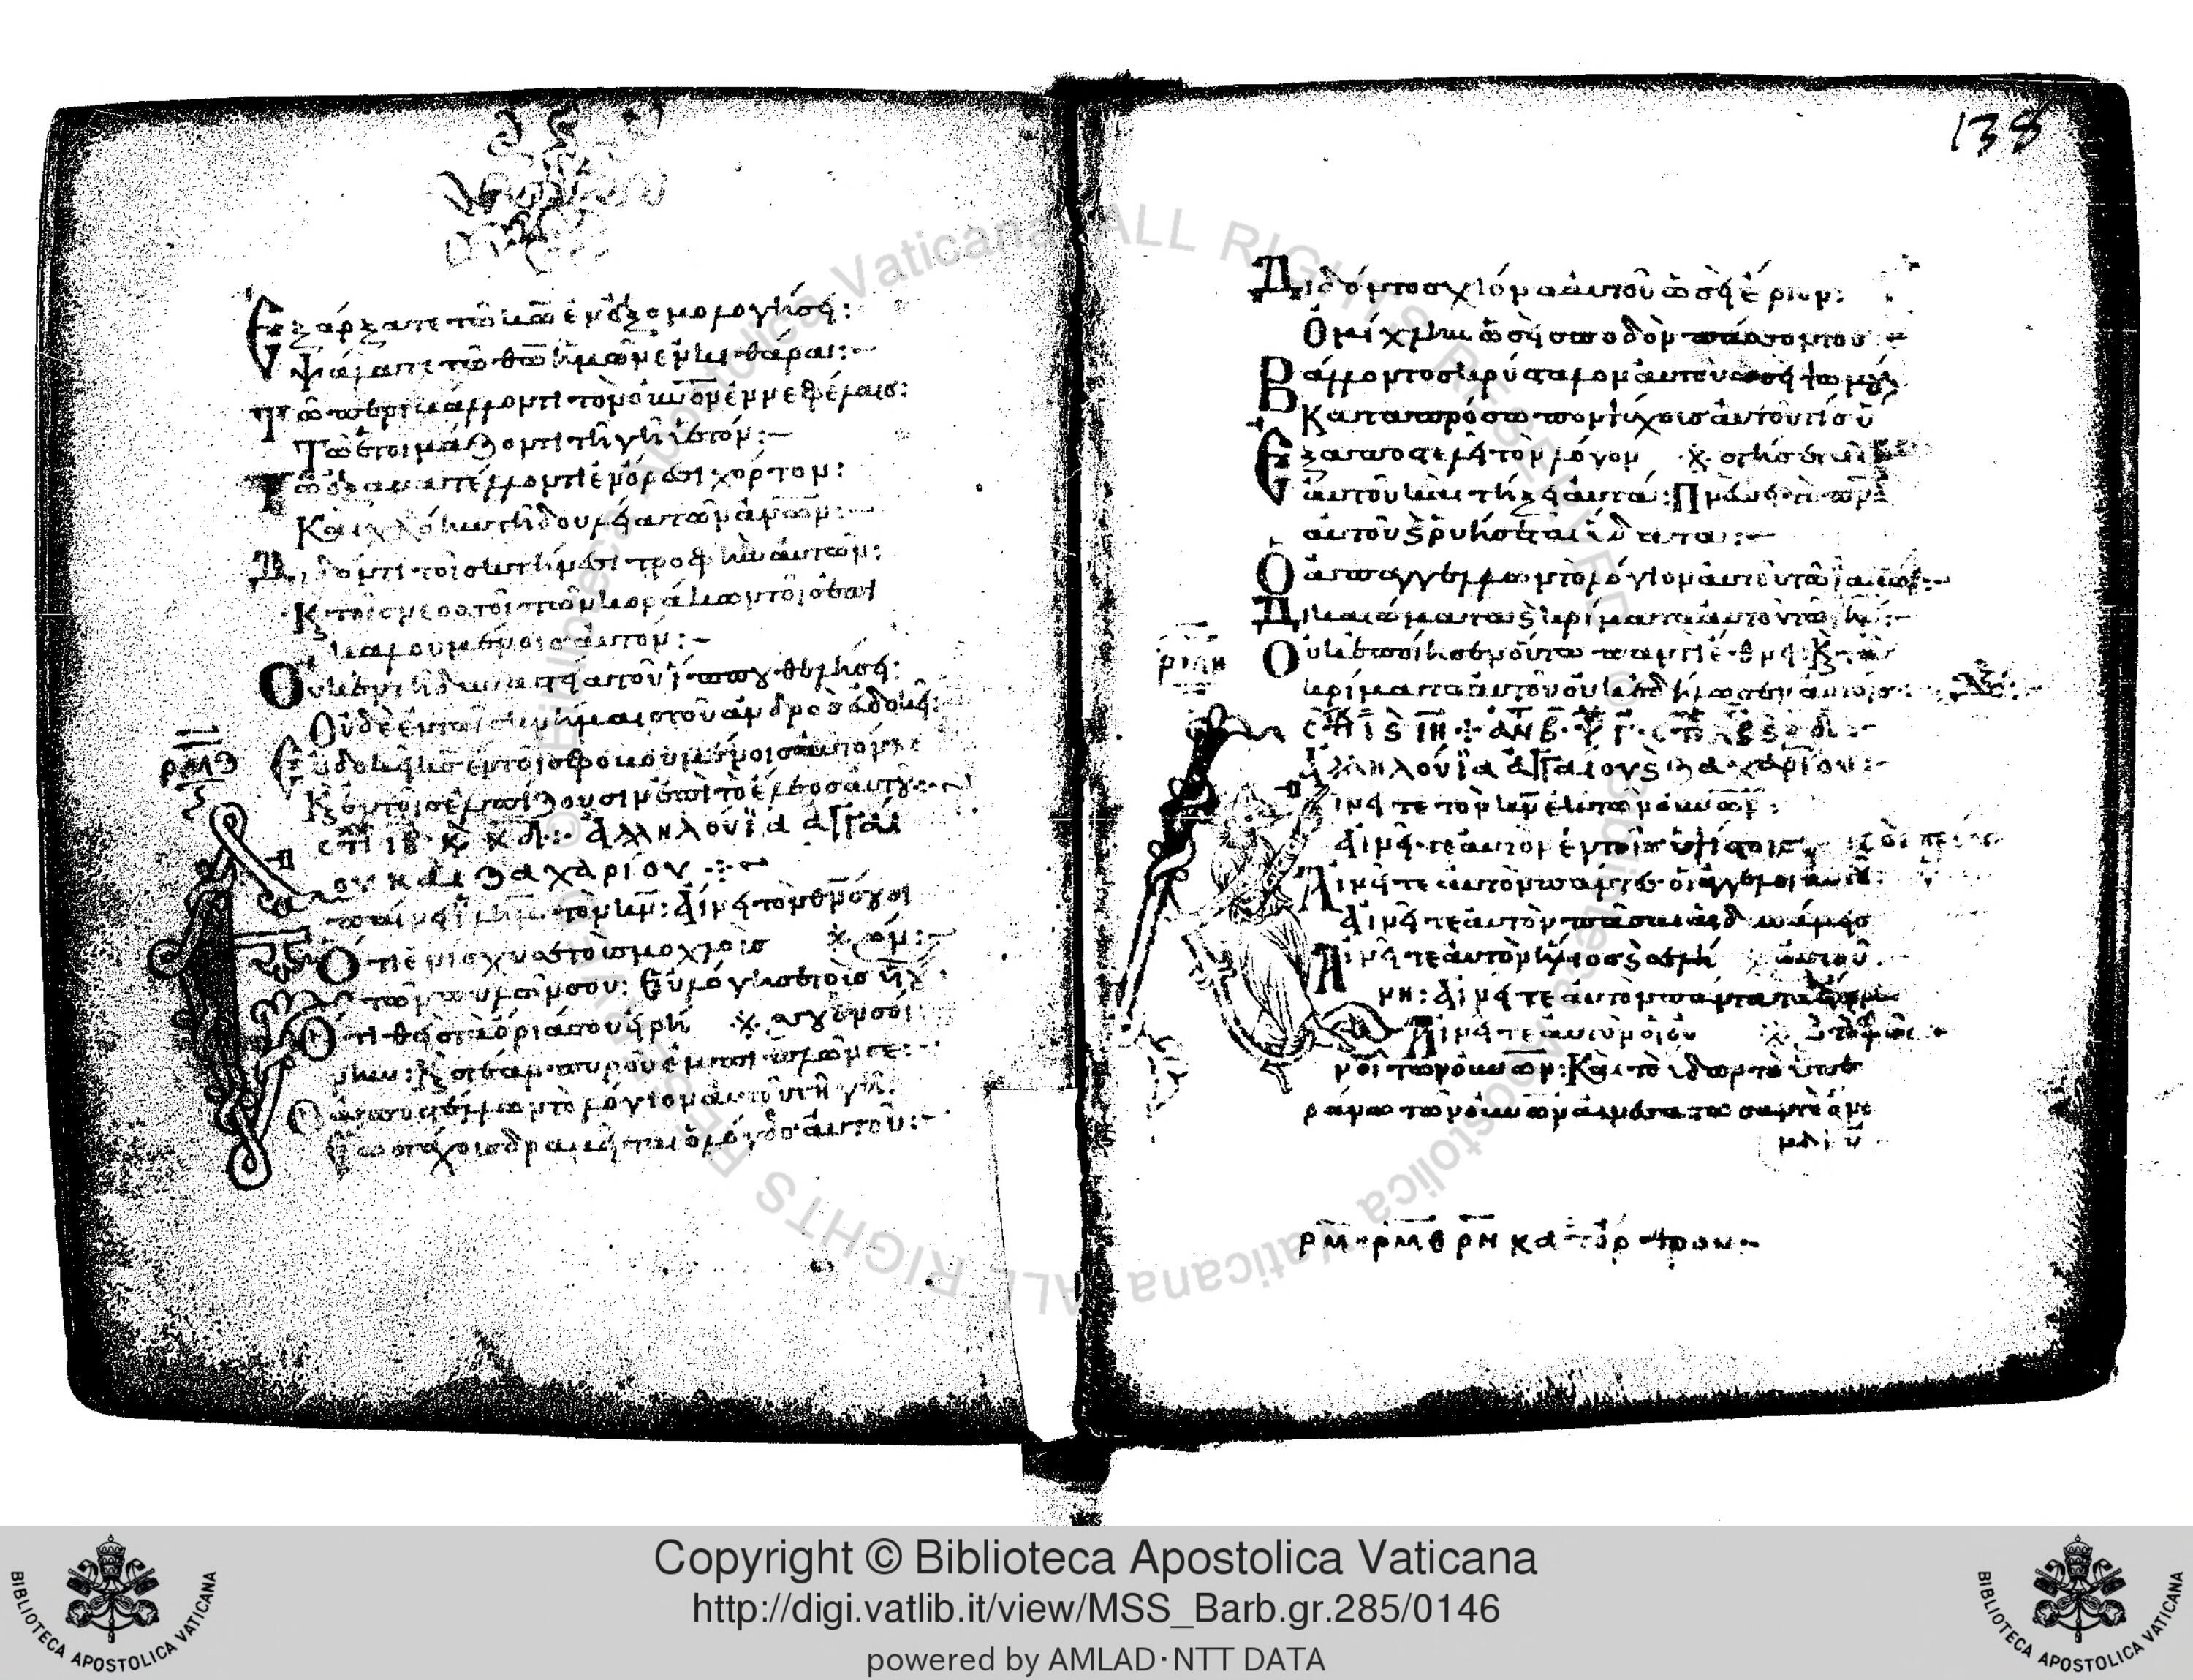 138
Ἐξάρξατε τῶ κω ἐν ἐξομολογήσει:
Ψάλατε τῶ θω ἡμῶν ἐν κιθάρα:
Τῶ περιβάλλοντι τὸν οὐνον ἐν νεφέλαις:
Τῶ ἑτοιμάζοντι τῆ γῆ ὑετόν:
Τῶ ἐξανατέλλοντι ἐν ὄρεσι χόρτον:
Καὶ χλόην τῆ δουλεία τῶν ανων:
Διδόντι τοῖς κτήνεσι τροφὴν αὐτῶν:
Κ τοῖς νεοσσοῖς τῶν κοράκων τοῖς ἐπι
καλουμένοις αὐτόν:
Οὐκ ἐν τῆ δυναστεία τοῦ ἵππου θελήσει:
Οὐδὲ ἐν ταῖς κνήμαις τοῦ ἀνδρὸς εὐδοκεῖ:
Εὐδοκεῖ κς ἐν τοῖς φοβουμένοις αὐτόν:
Κ ἐν τοῖς ἐλπίζουσιν ἐπὶ τὸ ἔλεος αὐτοῦ:
ρμζ
Ἀλληλούϊα Ἀγγαί
ου καὶ Ζαχαρίου
τὸν κν: Αἴνει τὸν θν σου
Ὅτι ἐνίσχυσε τοὺς μοχλοὺς
τῶν πυλῶν σου: Εὐλόγησε τοὺς υἱ
Ὁ τιθεὶς τὰ ὅριά σου εἰρή
νην: Κ στέαρ πυροῦ ἐμπιπλῶν σε:
Ὁ ἀποστέλλων τὸ λόγιον αὐτοῦ τῆ γῆ:
Ἕως τάχους δραμεῖται ὁ λόγος αὐτοῦ:
Διδόντος χιόνα αὐτοῦ ὡσεὶ ἔριον:
Ὁμίχλην ὡσεὶ σποδὸν πάσσοντος
Βάλλοντος κρύσταλλον αὐτοῦ ὡσεὶ ψωμούς
Κατὰ πρόσωπον ψύχους αὐτοῦ τίς ὑ
Ἐξαποστελεῖ τὸν λόγον
αὐτοῦ καὶ τήξει αὐτά: Πνεύσει τὸ πνα
αὐτοῦ κ ρυήσεται ὕδατα:
Ὁ ἀπαγγέλλων τὸ λόγιον αὐτοῦ τῶ ἰακώβ:
Δικαιώματα κ κρίματα αὐτοῦ τῶ ιηλ:
Οὐκ ἐποίησεν οὕτω παντὶ ἔθνει: Κ τὰ
κρίματα αὐτοῦ οὐκ ἐδήλωσεν αὐτοῖς:
ρμη
Ἀλληλούϊα Ἀγγαίου κ Ζαχαρίου:
Αἰνεῖτε τὸν κν ἐκ τῶν οὐνων:
Αἰνεῖτε αὐτὸν ἐν τοῖς ὑψίστοις
Αἰνεῖτε αὐτὸν πάντες οἱ ἄγγελοι αὐτοῦ:
Αἰνεῖτε αὐτὸν πᾶσαι αἱ δυνάμεις
Αἰνεῖτε αὐτὸν ἥλιος κ σελή
νη: Αἰνεῖτε αὐτὸν πάντα τὰ
Αἰνεῖτε αὐτὸν οἱ οὐ
νοὶ τῶν οὐνων: Καὶ τὸ ὕδωρ τὸ ὑπε
ράνω τῶν οὐνων αἰνεσάτωσαν τὸ
Copyright © Biblioteca Apostolica Vaticana
http://digi.vatlib.it/view/MSS_Barb.gr.285/0146
powered by AMLAD·NTT DATA
BIBLIOTECA APOSTOLICA VATICANA
BIBLIOTECA APOSTOLICA VATICANA